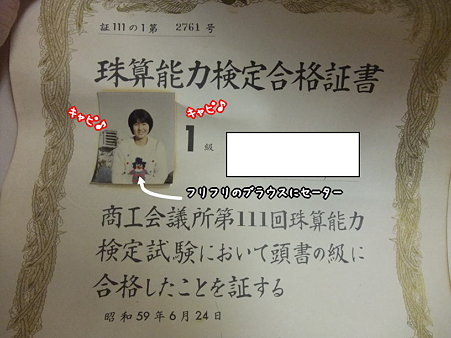 証111の1第 2761号
珠算能力検定合格証書
キャピ♪
キャピ♪
1級
フリフリのブラウスにセーター
商工会議所第111回珠算能力
検定試験において頭書の級に
合格したことを証する
昭和59年6月24日